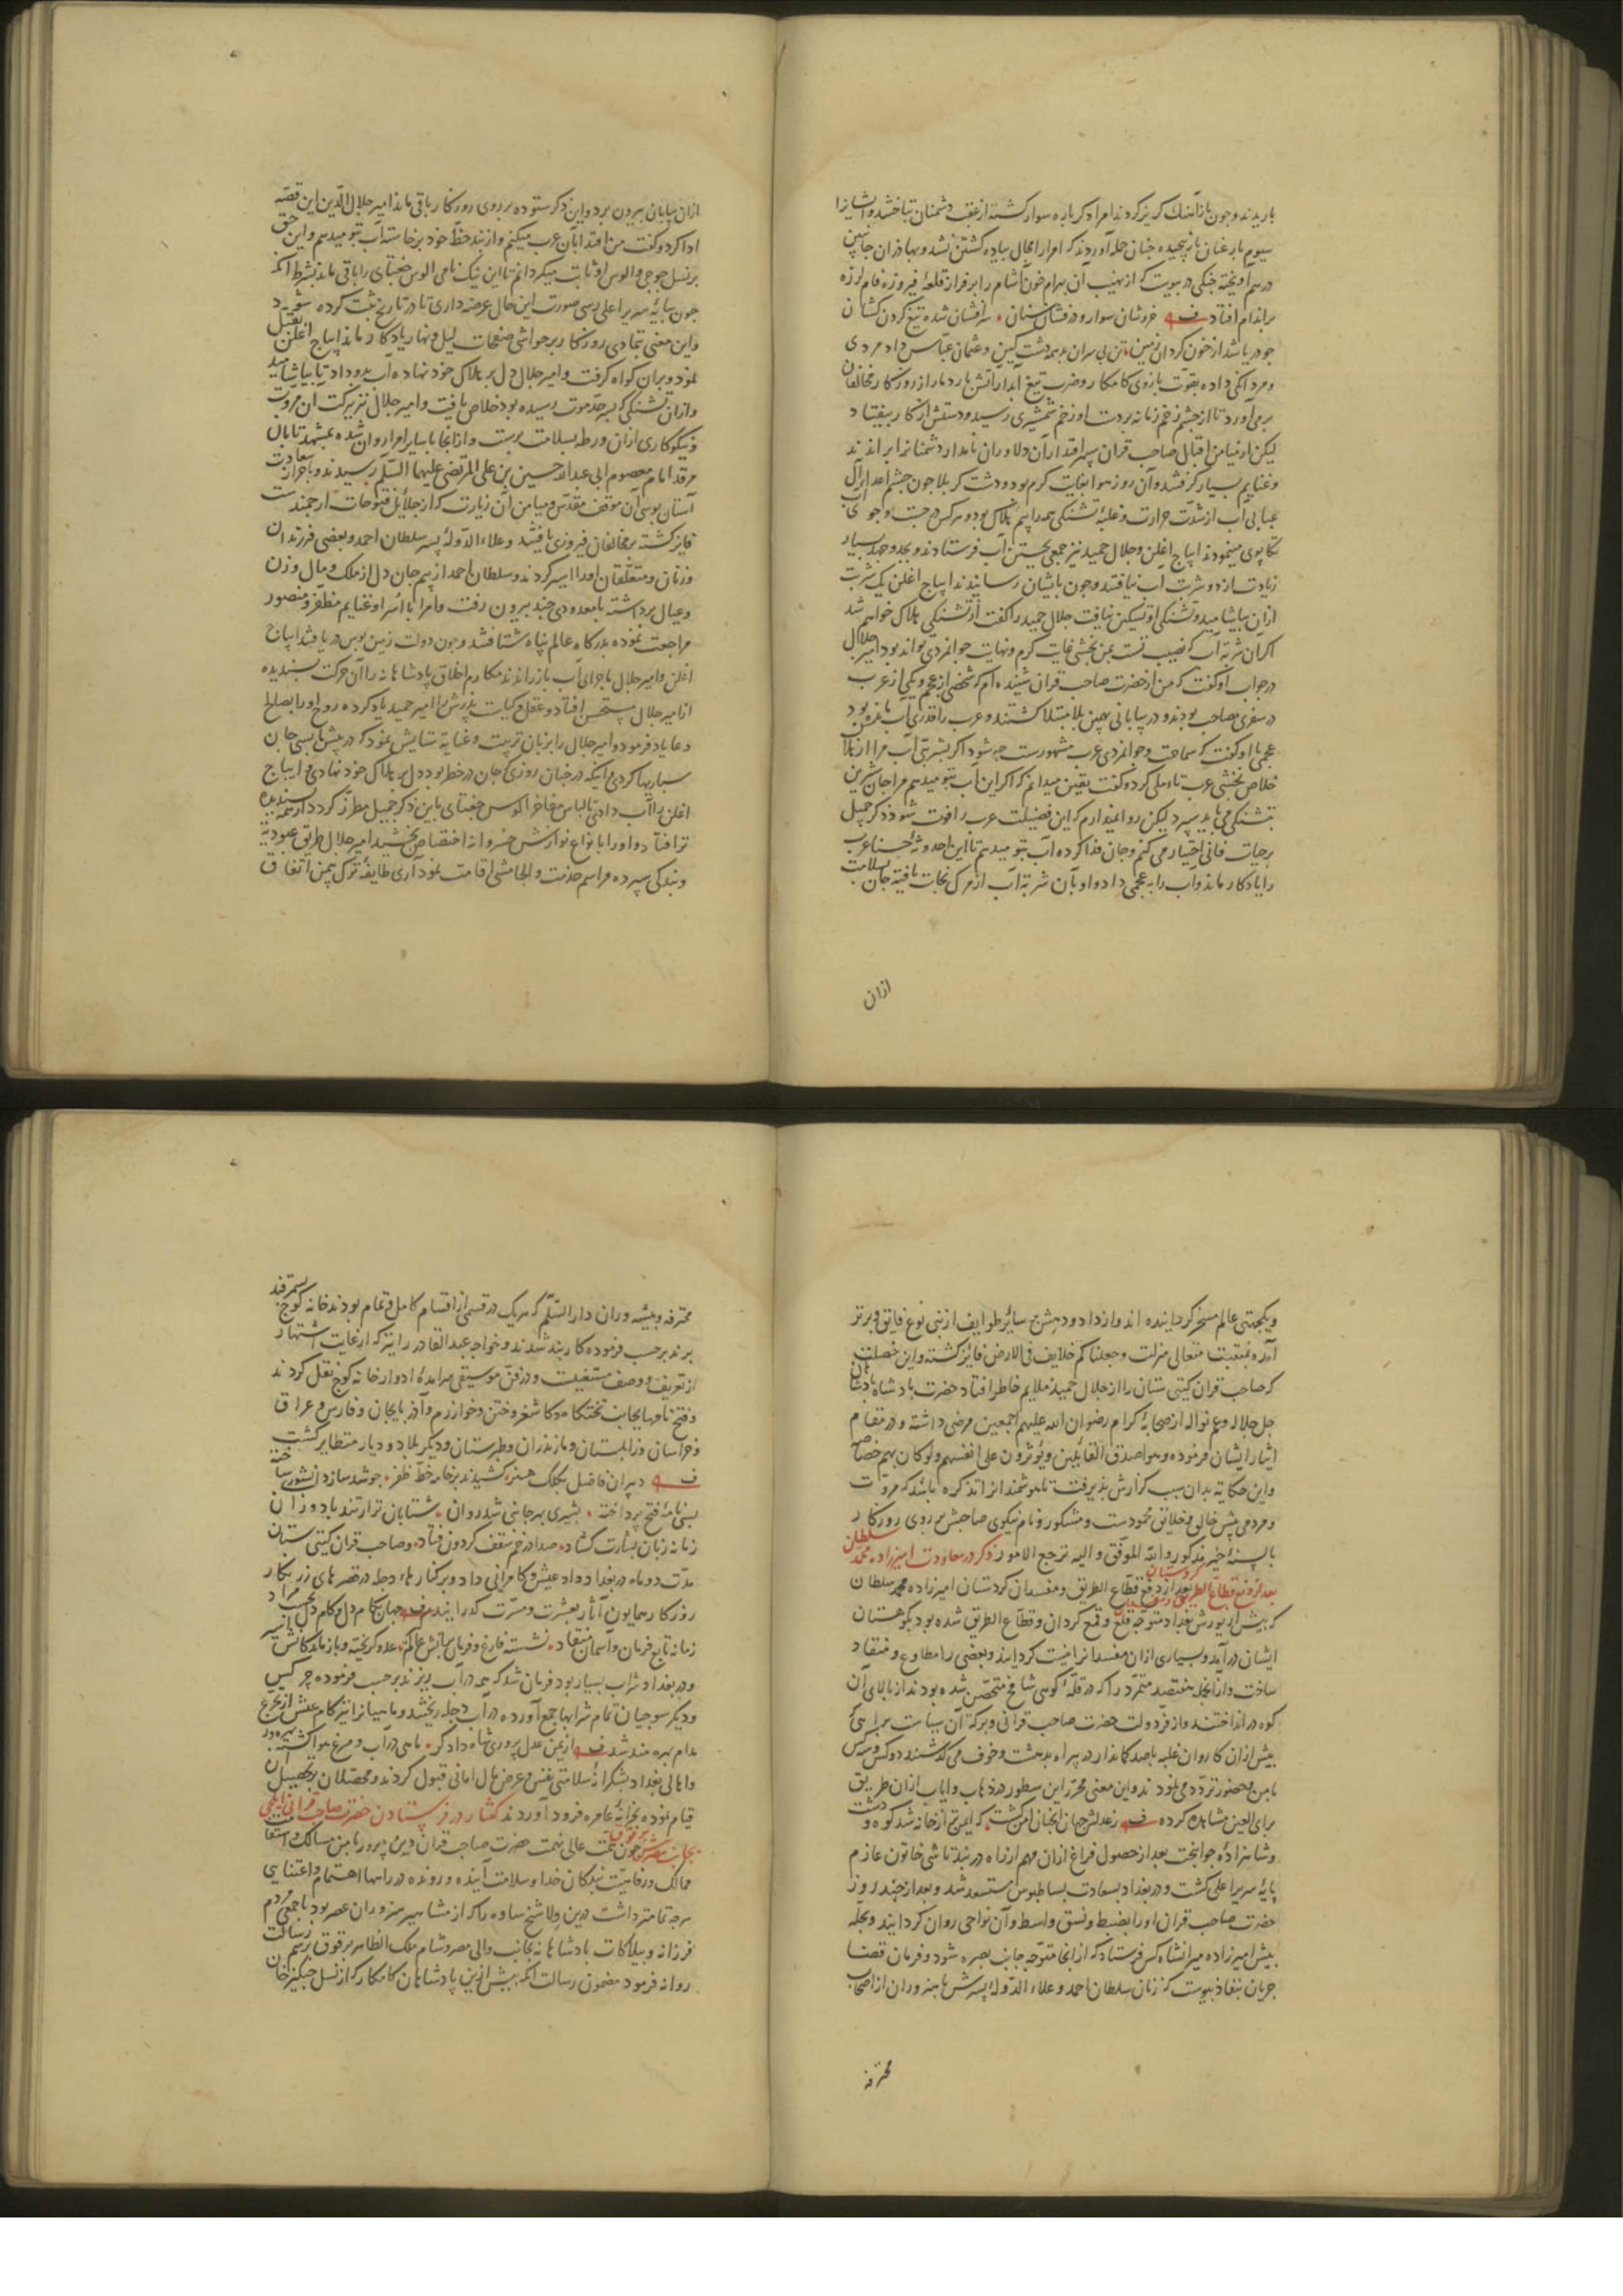 باریدند و چون باز آهنک کریز کردند امرا دکرباره سوار کشته از عقب دشمنان بتاختند و ایشانرا
سیوم بار عنان باز پیچیده چنان حمله آوردند که امرا را مجال پیاده کشتن نشد و بهادران جانبین
درهم آویخته جنکی در پیوست که از نهیب آن بهرام خون آشام را بر فراز قلعهٔ فیروزه فام لرزه
بر اندام افتاد خروشان سوار و درفشان سنان سرافشان شده تیغ کردن کشان
چو دریا شد از خون کردان زمین تن بی سران بد همه دشت کین و عثمان عباس داد مردی
و مردانکی داده بقوت بازوی کامکار و ضرب تیغ آبدار آتش بار دمار از روزکار مخالفان
بر می آورد تا از چشم زخم زمانه بر دست او زخم شمشیری رسید و دستش از کار بیفتاد
لیکن از میامن اقبال صاحب قران سپهر اقتدار آن دلاوران نامدار دشمنانرا براندند
و غنایم بسیار کرفتند و آن روز هوا بغایت کرم بود و دشت کربلا چون چشم اعداء آل
عبا بی آب از شدت حرارت و غلبهٔ تشنکی همه را بیم هلاک بود و هر کس در جست و جوی آب
تکاپوی مینمودند ایباج اغلن و جلال حمید نیز جمعی بجستن آب فرستادند و بجد و جهد بسیار
زیادت از دو شربت آب نیافتند و چون بایشان رسانیدند ایباج اغلن یک شربت
از آن بیاشامید و تشنکی او تسکین نیافت جلال حمید را کفت از تشنکی هلاک خواهم شد
اکر آن شربه آب که نصیب تست بمن بخشی غایت کرم و نهایت جوانمردی تواند بود امیر جلال
در جواب او کفت که من از حضرت صاحب قران شنیده ام که شخصی از عجم و یکی از عرب
در سفری مصاحب بودند و در بیابانی بهمین بلا مبتلا کشتند و عرب را قدری آب مانده بود
عجمی با او کفت که سماحت و جوانمردی عرب مشهورست چه شود اکر بشربتی آب مرا از هلاک
خلاص بخشی عرب تاملی کرد و کفت یقین میدانم که اکر این آب بتو میدهم مرا جان شیرین
بتشنکی می باید سپرد لیکن روا نمیدارم که این فضیلت عرب را فوت شود ذکر جمیل
بر حیات فانی اختیار می کنم و جان فدا کرده آب بتو میدهم تا این احدوثهٔ حسنا عرب
را یادکار ماند و آب را به عجمی داد و او بآن شربه آب از مرک نجات یافته جان بسلامت
ازان
ازان بیابان بیرون برد و این ذکر ستوده بر روی روزکار باقی ماند امیر جلال الدین این قصه
ادا کرد و کفت من اقتدا بآن عرب میکنم و از بند حظ خود برخاسته آب بتو میدهم و این حق
بر نسل جوجی و الوس او ثابت میکردانم تا این نیک نامی الوس جغتای را باقی ماند بشرط آنکه
چون بپایهٔ سریر اعلی رسی صورت این حال عرضه داری تا در تاریخ ثبت کرده شود
و این معنی بتمادی روزکار بر حواشی صفحات لیل و نهار یادکار ماند ایباج اغلن تقبل
نمود و بر آن کواه کرفت و امیر جلال دل بر هلاک خود نهاده آب بدو داد تا بیاشامید
و از آن تشنکی که بسر حد موت رسیده بود خلاص یافت و امیر جلال نیز ببرکت آن مروت
و نیکوکاری از آن ورطه بسلامت برست و از آنجا با سایر امرا روان شده بمشهد تابان
مرقد امام معصوم ابی عبدالله حسین بن علی المرتضی علیهما السلم رسیدند و باحراز سعادت
آستان بوسی آن موقف مقدس و میامن آن زیارت که از جلایل فتوحات ارجمندست
فایز کشته بر مخالفان فیروزی یافتند و علاء الدوله پسر سلطان احمد و بعضی فرزندان
و زنان و متعلقان او را اسیر کردند و سلطان احمد از بیم جان دل از ملک و مال و زن
و عیال برداشته با معدودی چند بیرون رفت و امرا با اسرا و غنایم مظفر و منصور
مراجعت نموده بدرکاه عالم پناه شتافتند و چون دولت زمین بوس دریافتند ایباج
اغلن و امیر جلال ماجرای آب باز راندند مکارم اخلاق پادشاهانه را آن حرکت پسندیده
از امیر جلال مستحسن افتاد و عقل و کیاست پدرش را امیر حمید یاد کرده روح او را بصالح
دعا یاد فرمود و امیر جلال را بزبان تربیت و عنایه ستایش نمود که در پیش ما بسی جان
سپاریها کردی و اینکه در چنان روزی که جان در خطر بود دل بر هلاک خود نهادی و ایباج
اغلن را آب دادی تا لباس مفاخر الوس جغتای باین ذکر جمیل مطرز کردد از همه پسندیده
تر افتاد و او را بانواع نوازش خسروانه اختصاص بخشید امیر جلال طریق عبودیة
و بندکی سپرده مراسم خدمت و الجامشی اقامت نمود آری طایفهٔ ترک بیمن اتفاق
و یکجهتی عالم مسخر کردانیده اند و از داد و دهش بر سایر طوایف از بنی نوع فایق و برتر
آمده بمنقبت متعالی منزلت و جعلناکم خلایف فی الارض فایز کشته و این خصلت
که صاحب قران کیتی ستان را از جلال حمید ملایم خاطر افتاد حضرت پادشاه پادشاهان
جل جلاله و عم نواله از صحابهٔ کرام رضوان الله علیهم اجمعین مرضی داشته و در مقام
ایثار ایشان فرموده و هو اصدق القائلین و یؤثرون علی انفسهم و لو کان بهم خصاصة
و این حکایة بدان سبب کزارش پذیرفت تا هوشمندانرا تذکره باشد که مروت
و مردمی پیش خالق و خلایق محمودست و مشکور و نام نیکوی صاحبش بر روی روزکار
بالسنهٔ خیر مذکور و الله الموفق و الیه ترجع الامور ذکر در معاودت امیرزاده محمد سلطان
بعد از دفع قطاع الطریق کردستان بعد از دفع قطاع الطریق و مفسدان کردستان امیرزاده محمد سلطان
که پیش از یورش بغداد متوجه قلع و قمع کردان و قطاع الطریق شده بود بکوهستان
ایشان درآمد و بسیاری از آن مفسدانرا نیست کردانید و بعضی را مطاوع و منقاد
ساخت و از آنجمله متمرد را که در قلهٔ کوهی شامخ متحصن شده بودند از بالای آن
کوه در انداختند و از فر دولت حضرت صاحب قرانی و برکه آن سیاست بر راهی که
پیش از آن کاروان غلبه با صد کماندار در پیراه بدهشت و خوف می کذشتند دو کس و سه کس
بامن و حضور تردد می نمودند و این معنی محرر این سطور در ذهاب و ایاب از آن طریق
برای العین مشاهده کرده ز عدلش جهان آنچنان امن کشت که ایمن تر از خانه شد کوه و دشت
و شاهزادهٔ جوانبخت بعد از حصول فراغ از آن مهم از راه دربند تاشی خاتون عازم
پایهٔ سریر اعلی کشت و در بغداد بسعادت بساط بوس مستسعد شد و بعد از چند روز
حضرت صاحب قران او را بضبط و نسق واسط و آن نواحی روان کردانید و بحله
پیش امیرزاده میرانشاه کس فرستاد که از آنجا متوجه جانب بصره شود و فرمان قضا
جریان بنفاذ پیوست که زنان سلطان احمد و علاء الدوله پسرش با هنروران از اصحاب
محترفه
محترفه و پیشه وران دار السلم که هر یک در قسمی از اقسام کامل و تمام بودند خانه کوچ بسمرقند
برند بر حسب فرموده کاربند شدند و خواجه عبدالقادر را نیز که از غایت اشتهار
از تعریف و وصف مستغنیست و در فن موسیقی سرآمدهٔ ادوار خانه کوچ نقل کردند
و فتح نامها بجانب تختکاه و کاشغر و ختن و خوارزم و آذربایجان و فارس و عراق
و خراسان و زابلستان و مازندران و طبرستان و دیکر بلاد و دیار متطایر کشت
دبیران فاضل بکلک هنر کشیدند بر نامه خط ظفر چو شد ساز منشور ساخته
بسی نامهٔ فتح پرداخته بشیری بهر جانبی شد روان شتابان تر از تند باد وزان
زمانه زبان بشارت کشاد صدا در خم سقف کردون فتاد و صاحب قران کیتی ستان
مدت دو ماه در بغداد داد عیش و کامرانی داد و بر کنارهاء دجله در قصرهای زرنکار
روزکار همایون آثار بعشرت و مسرت کذرانید جهان بکام دل و کام دل بحسب مراد
زمانه تابع فرمان و آسمان منقاد نشسته فارغ و فرمان بهانش عالم عدو کریخته و بازماندکانش اسیر
و در بغداد شراب بسیار بود فرمان شد که همه در آب ریزند بر حسب فرموده چرکیس
و دیکر سوجیان تمام شرابها جمع آورده در آب دجله ریختند و ماهیانرا نیز کام عیش از تجرع
مدام بهره مند شد از یمن عدل پروری شاه دادکر ماهی در آب و مرغ هوا کشته بهره ور
و اهالی بغداد بشکرانهٔ سلامتی نفس و عرض مال امانی قبول کردند و محصلان بتحصیل آن
قیام نموده بخزانهٔ عامره فرود آوردند کفتار در فرستادن حضرت صاحب قرانی ایلچی
بجانب مصر پیش برقوق چون همت عالی نهمت حضرت صاحب قران دین پرور بامن مسالک و استقامت
ممالک و رفاهیت بندکان خدا و سلامت آینده و رونده در راهها اهتمام و اعتنایی
هرچه تمامتر داشت درین ولا شیخ ساوه را که از مشاهیر هنروران عصر بود با جمعی مردم
فرزانه و بیلاکات پادشاهانه بجانب والی مصر و شام ملک الظاهر برقوق برسم رسالت
روانه فرمود مضمون رسالت آنکه پیش ازین پادشاهان کامکار که از نسل جنکیز خان